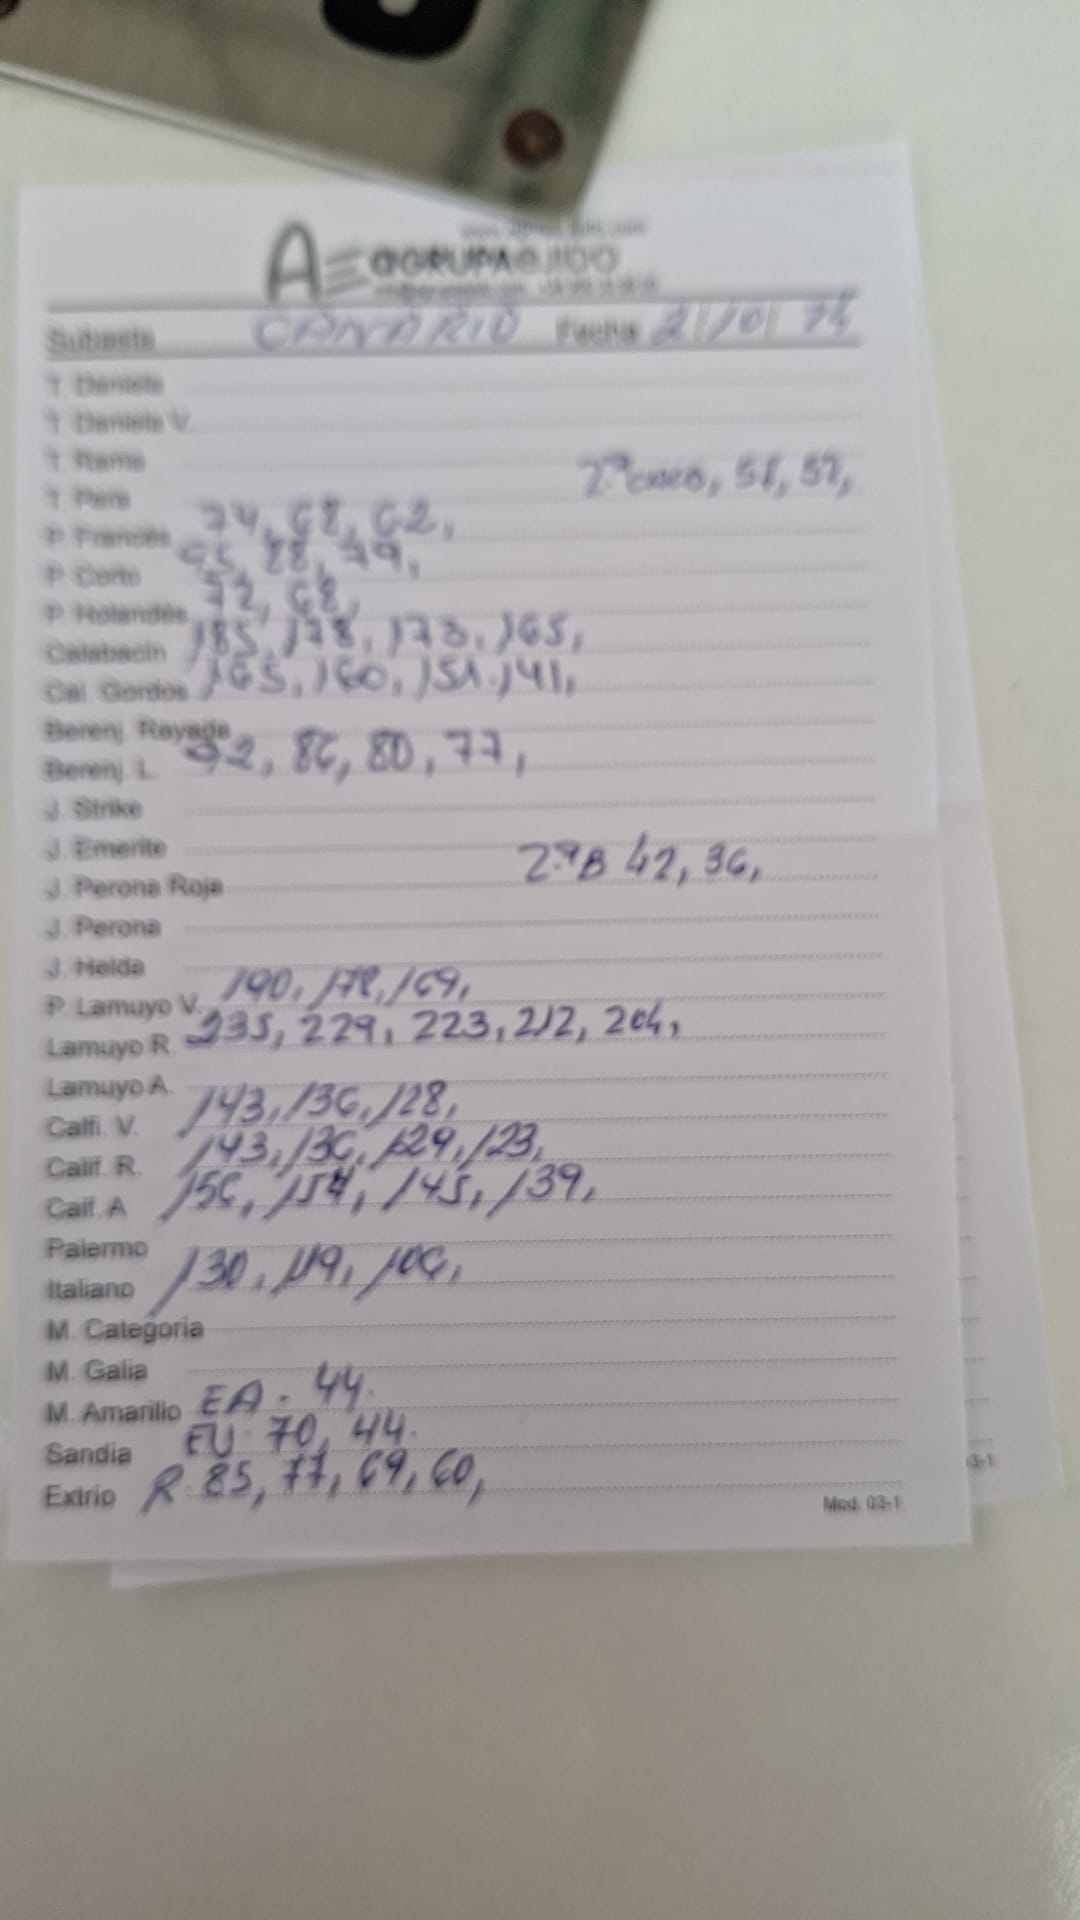 AGRUPAEJIDO
Subasta CANARIO Fecha 2/10/24
T. Daniela
T. Daniela V.
T. Rama
T. Pera
P. Francés 74, 68, 62,
P. Corto 95, 88, 79,
P. Holandés 72, 68,
Calabacín 185, 178, 173, 165,
Cal. Gordos 165, 160, 151, 141,
Berenj. Rayada
Berenj. L. 92, 86, 80, 77,
J. Strike
J. Emerite
J. Perona Roja 2.ªB 42, 36,
J. Perona
J. Helda
P. Lamuyo V. 190, 178, 169,
Lamuyo R. 235, 229, 223, 212, 204,
Lamuyo A.
Calfi. V. 143, 136, 128,
Calif. R. 143, 136, 129, 123,
Calf. A 156, 151, 145, 139,
Palermo
Italiano 130, 119, 106,
M. Categoria
M. Galia
M. Amarillo EA. 44.
Sandia EU 70, 44.
Extrio R 85, 77, 69, 60,
Mod. 03-1
3-1